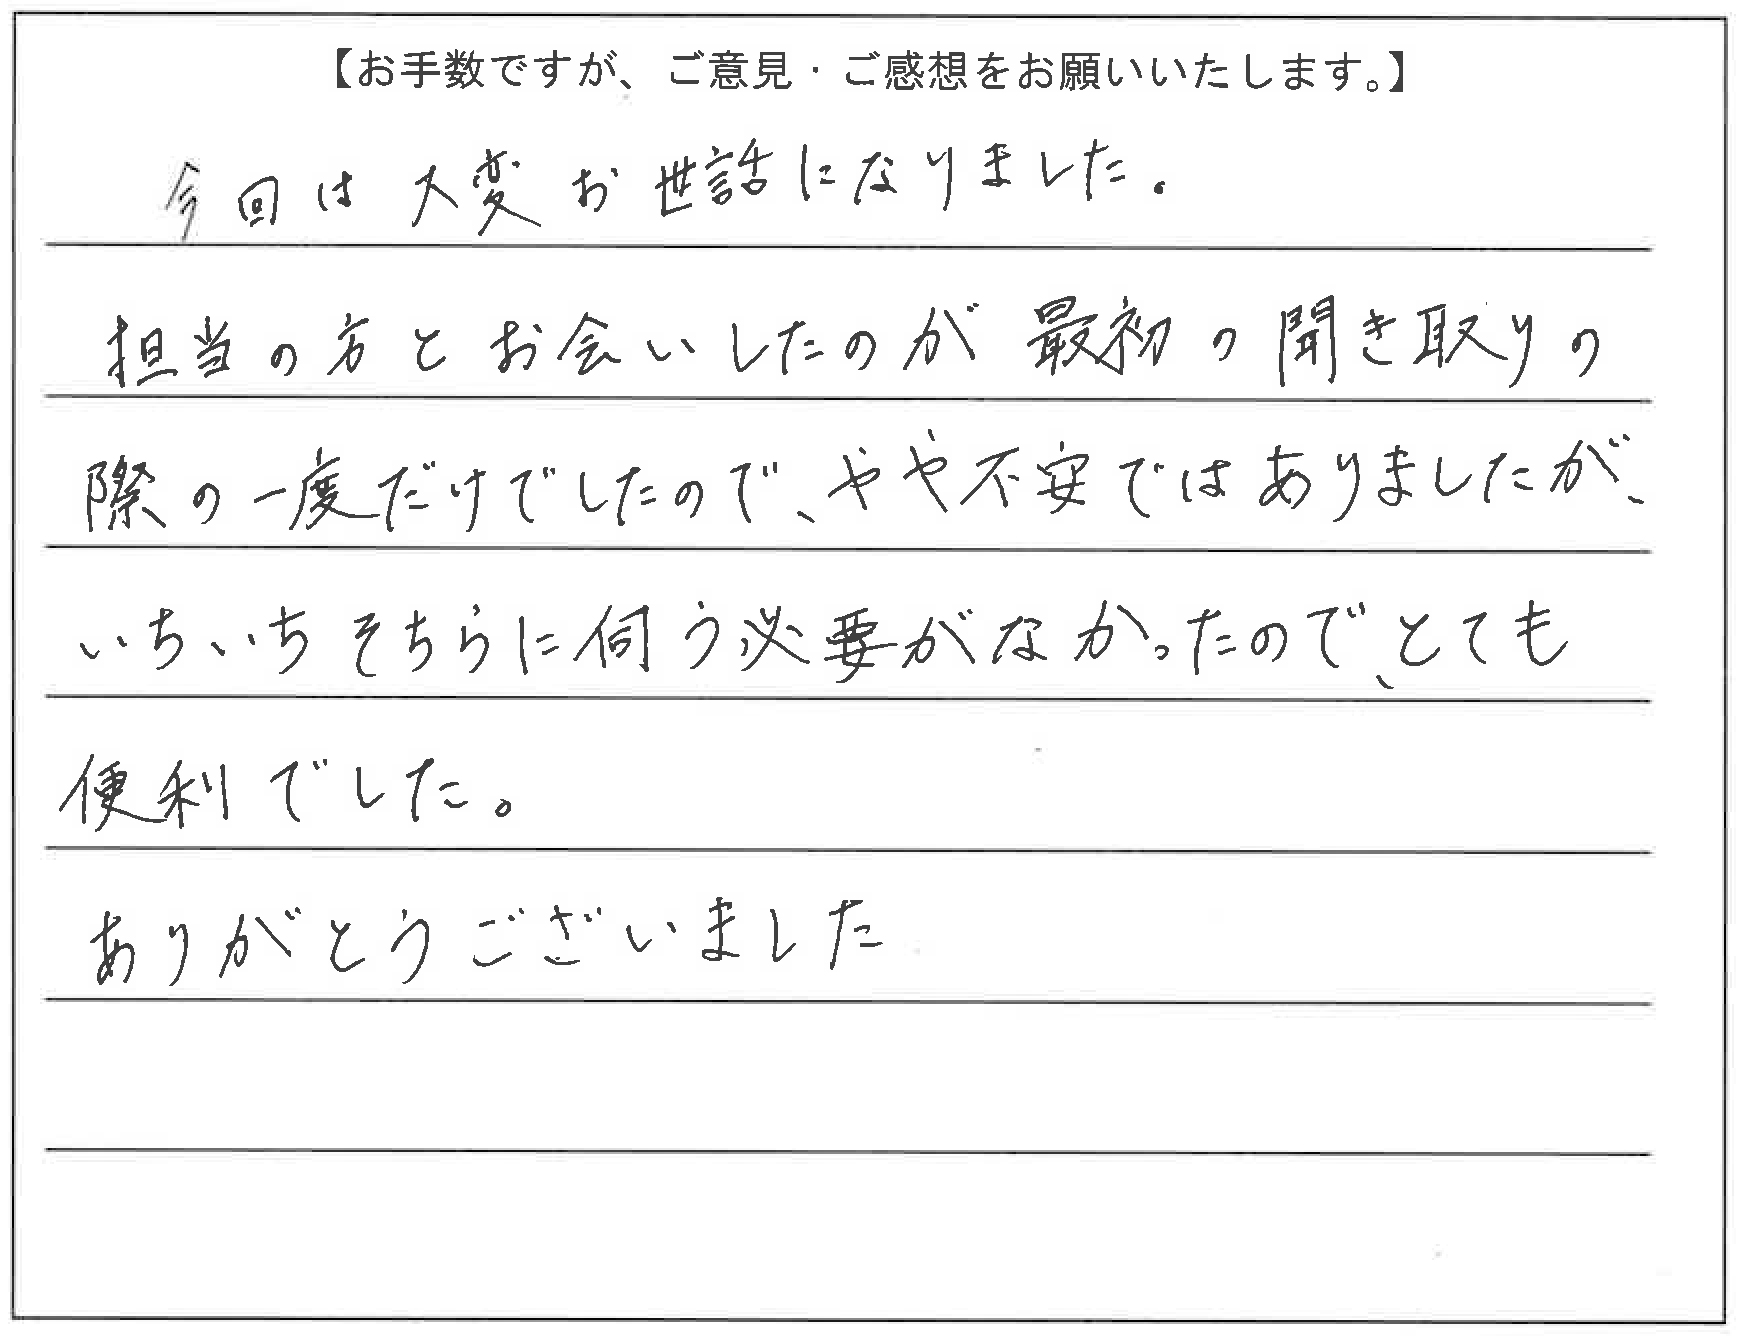 【お手数ですが、ご意見・ご感想をお願いいたします。】
今回は大変お世話になりました。
担当の方とお会いしたのが最初の聞き取りの
際の一度だけでしたので、やや不安ではありましたが、
いちいちそちらに伺う必要がなかったので、とても
便利でした。
ありがとうございました